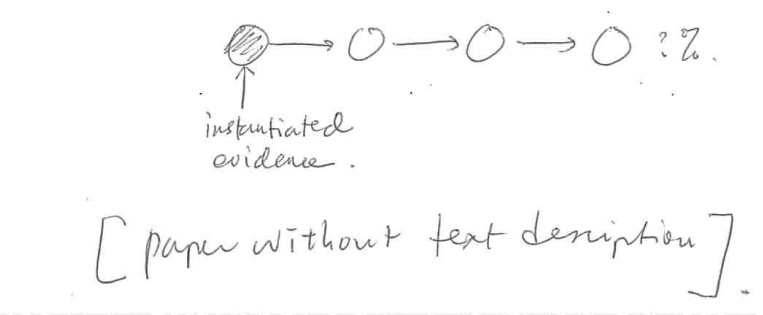 ? %.
instantiated
evidence.
[paper without text desniption].